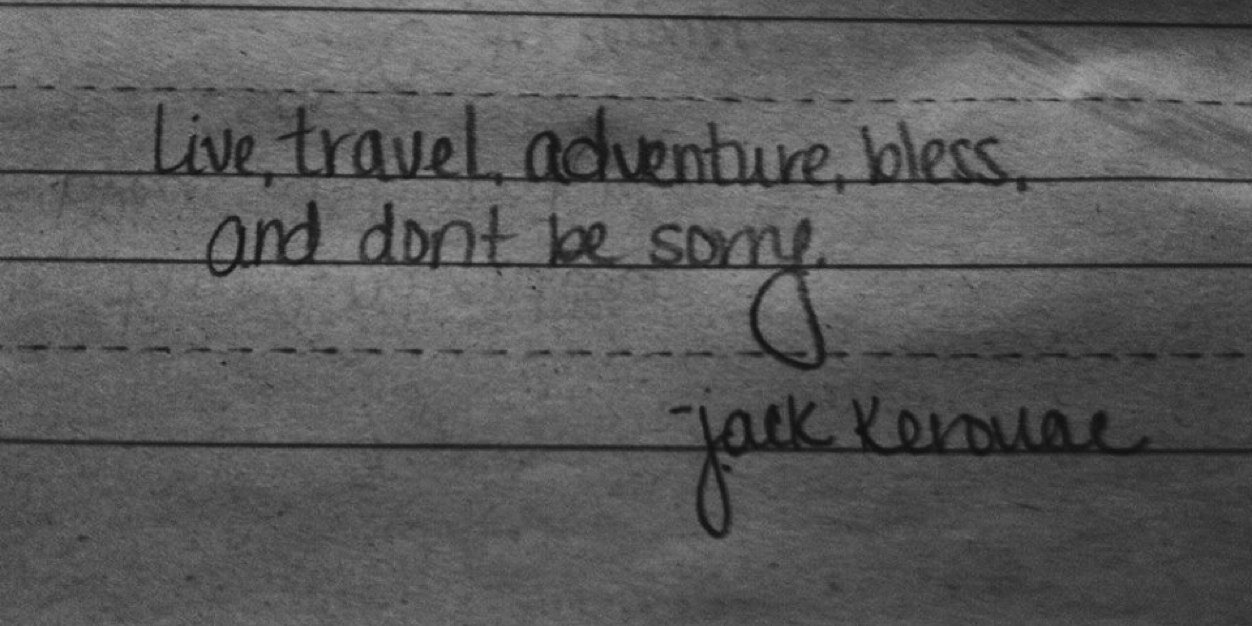 Live, travel, adventure, bless,
and dont be sorry.
-jack Kerouac